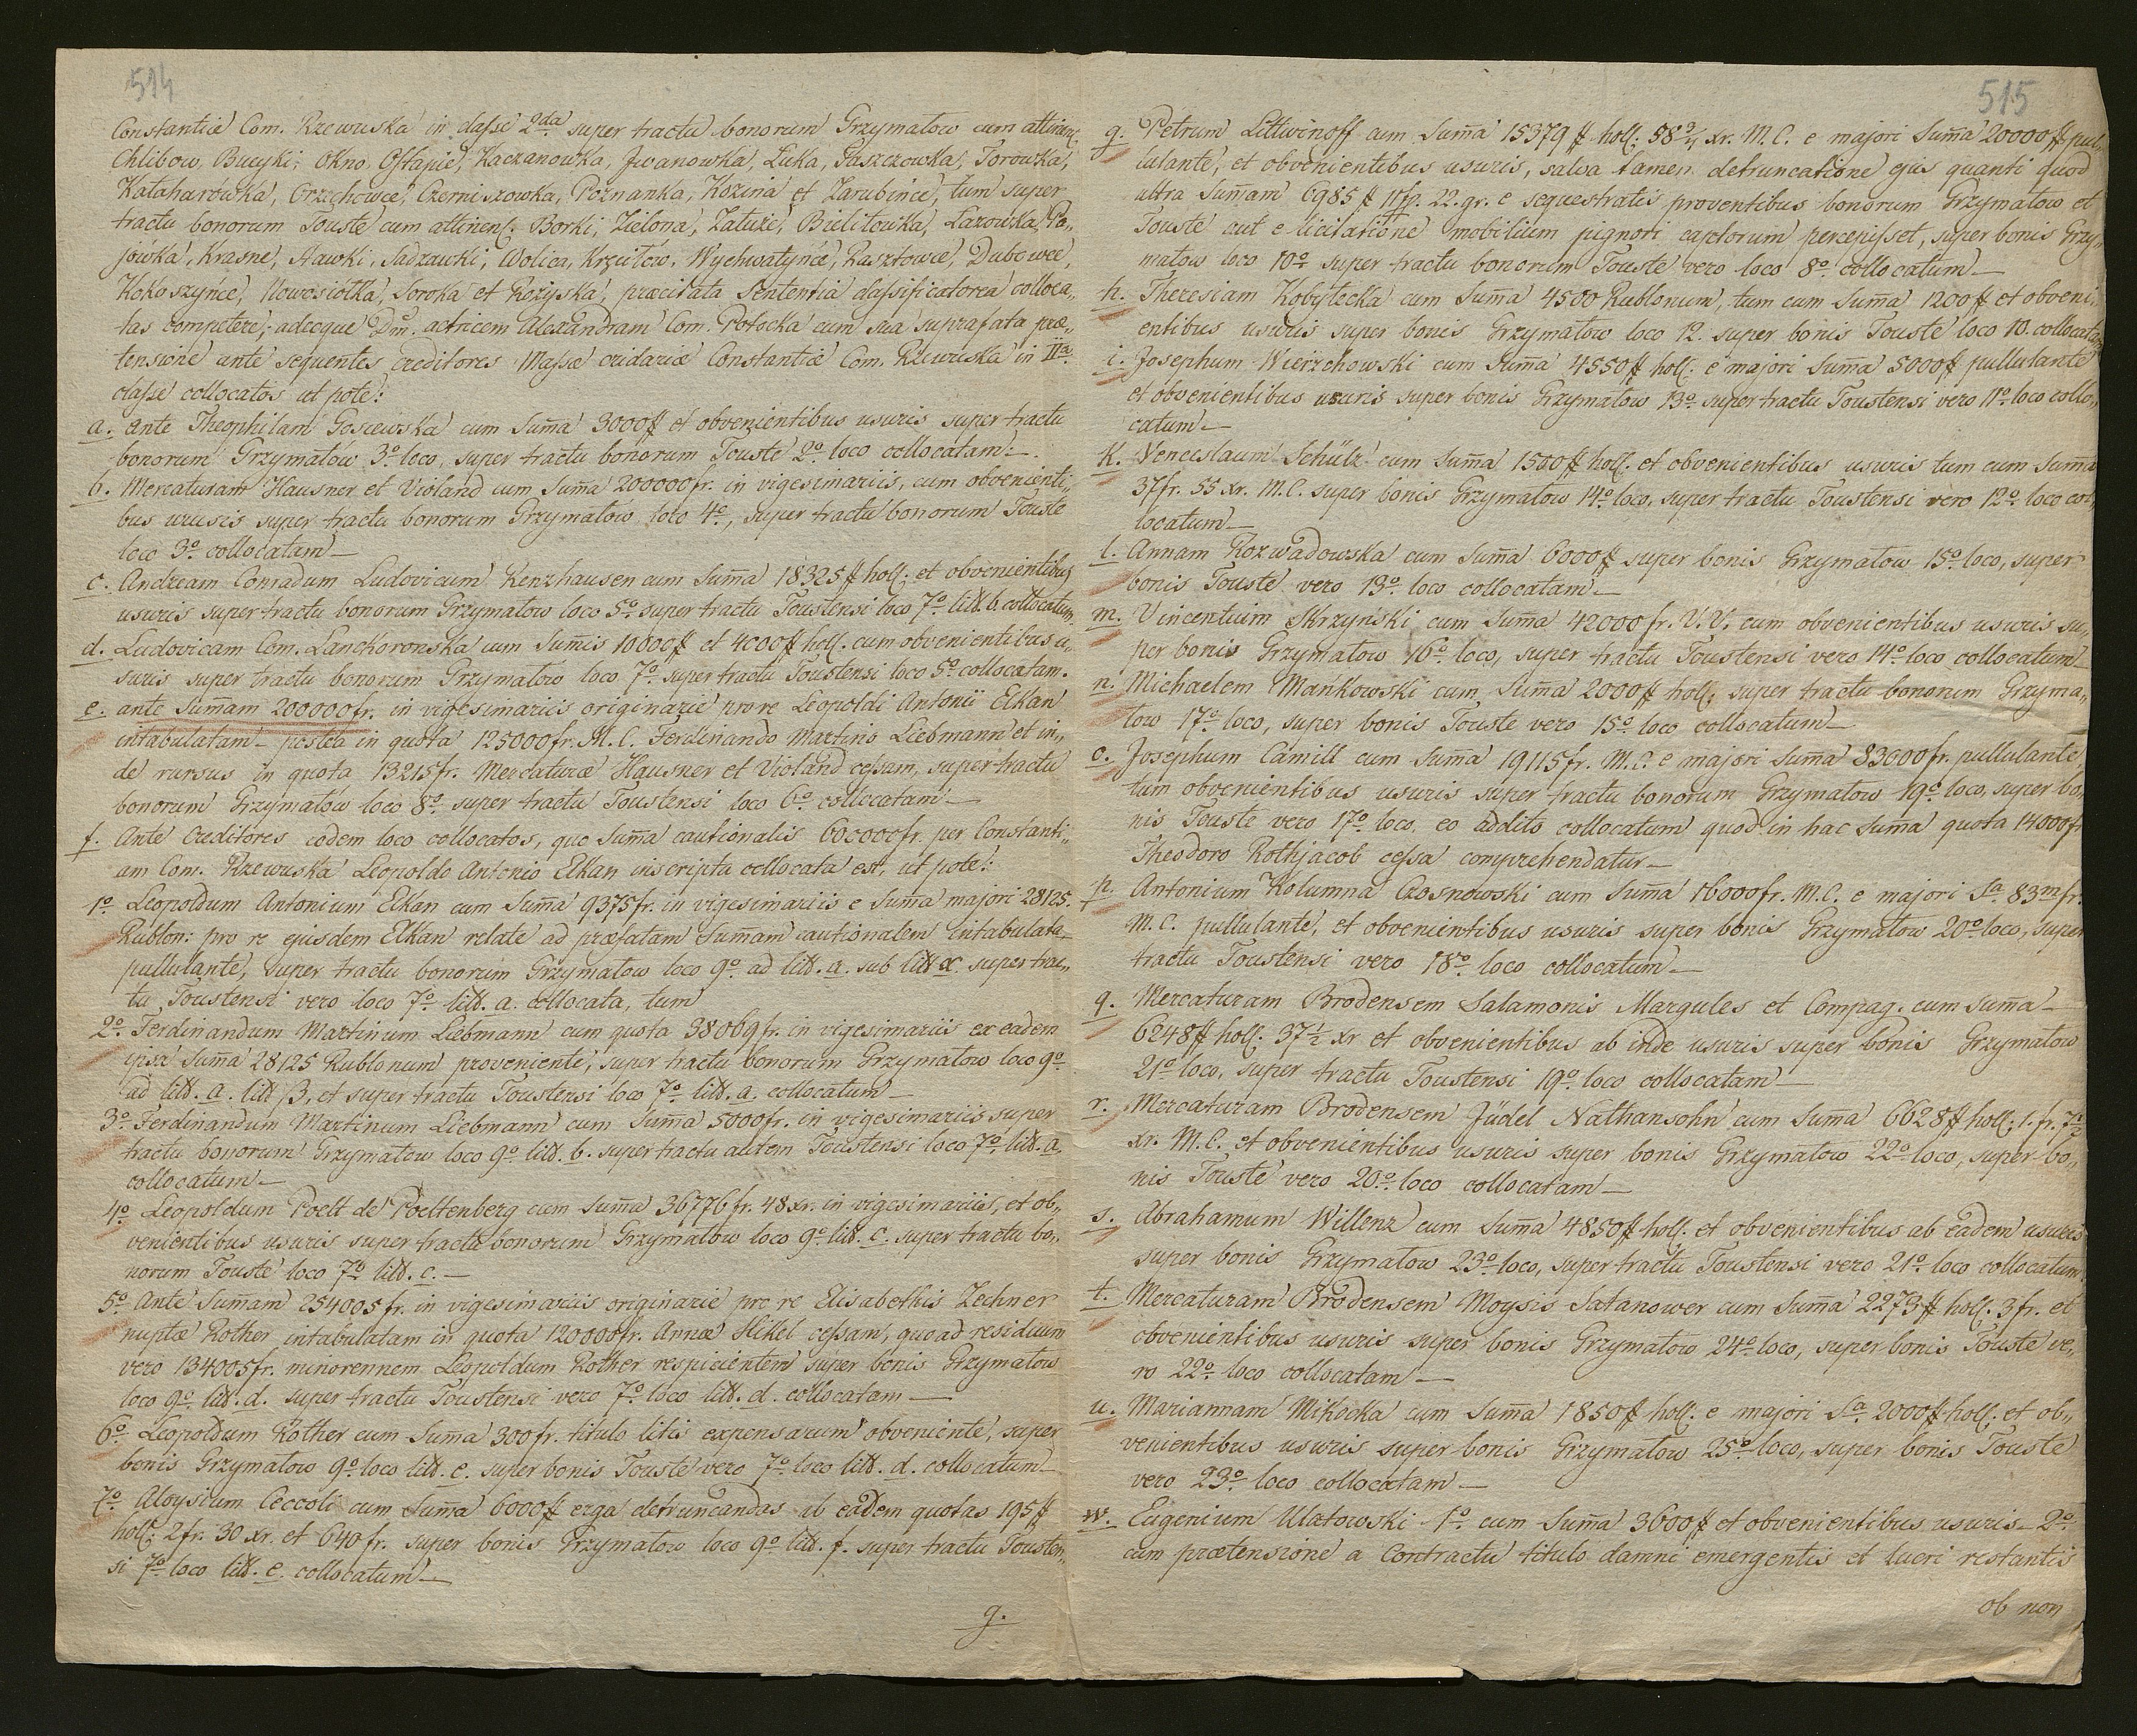 514
Constantiæ Com. Rzewuska in classe 2da super tractu bonorum Grzymałow cum attinenc.
Chlibow, Bucyki, Okno, Ostapie, Kaczanowka, Jwanowka, Łuka, Paszczowka, Torowka,
Kałaharówka, Orzechowce, Czerniszowka, Poznanka, Kozina et Zarubince, tum super
tractu bonorum Touste cum attinenc. Borki, Zielona, Załuże, Bielitowka, Lazowka, Po„
jówka, Krasne, Sławki, Sadzawki, Wolica, Krzciłów, Wychwatyńce, Rasztowce, Dubowce,
Kokoszyńce, Nowosiołka, Soroka et Rożyska, præcitata Sententia classificatorea colloca„
tas competere, adeoque Dm. actricem Alexandram Com. Potocka cum sua suprafata præ„
tensione ante sequentes creditores Massæ cridariæ Constantiæ Com. Rzewuska in IIa
classe collocatos ut pote:
a. ante Theophilam Gosiewska cum Summa 3000# et obvenientibus usuris super tractu
bonorum Grzymałów 3o loco, super tractu bonorum Touste 2o loco collocatam.
b. Mercaturam Hausner et Violand cum Summa 200000fr. in vigesimariis, cum obvenienti„
bus usuris super tractu bonorum Grzymałow loco 4o, super tractu bonorum Touste
loco 3o collocatam
c. Andream Conradum Ludovicum Renzhausen cum Summa 18325# holl. et obvenientibus
usuris super tractu bonorum Grzymałow loco 5o super tractu Toustensi loco 7o litt. b. collocatum.
d. Ludovicam Com. Lanckoronska cum Summis 10000# et 4000# holl. cum obvenientibus u„
suris super tractu bonorum Grzymałow loco 7o super tractu Toustensi loco 5o collocatam.
e. ante Summam 200000fr. in vigesimariis originarie pro re Leopoldi Antonii Elkan
intabulatam postea in quota 125000fr. M.C. Ferdinando Martino Liebmann et in„
de rursus in quota 13215fr. Mercaturæ Hausner et Violand cessam, super tractu
bonorum Grzymałów loco 8o super tractu Toustensi loco 6o collocatam
f. Ante Creditores eodem loco collocatos, quo Summa cautionalis 600000fr. per Constanti„
am Com. Rzewuska Leopoldo Antonio Elkan inscripta collocata est, ut pote:
1o Leopoldum Antonium Elkan cum Summa 9375fr. in vigesimariis e Summa majori 28125.
Rublon: pro re ejusdem Elkan relate ad præfatam Summam cautionalem intabulata
pullulante, super tractu bonorum Grzymałow loco 9o ad litt. a. sub litt α. super trac„
tu Toustensi vero loco 7o litt. a. collocata, tum
2o Ferdinandum Martinum Liebmann cum quota 38069fr. in vigesimariis ex eadem
ipsa Summa 28125 Rublonum proveniente, super tractu bonorum Grzymałow loco 9o
ad litt. a. litt β, et super tractu Toustensi loco 7o litt. a. collocatum
3o Ferdinandum Martinum Liebmann cum Summa 5000fr. in vigesimariis super
tractu bonorum Grzymałow loco 9o litt. b. super tractu autem Toustensi loco 7o litt. a.
collocatum
4o Leopoldum Poelt de Poeltenberg cum Summa 36776fr. 48xr. in vigesimariis, et ob„
venientibus usuris super tractu bonorum Grzymałow loco 9o litt. c. super tractu bo„
norum Touste loco 7o litt. c.
5o Ante Summam 254005fr. in vigesimariis originarie pro re Elisabethis Zechner
nuptæ Rother intabulatam in quota 120000fr. Annæ Hikel cessam, quoad residuum
vero 134005fr. minorennem Leopoldum Rother respicientem super bonis Grzymałow
loco 9o litt. d. super tractu Toustensi vero 7o loco litt. d. collocatam
6o Leopoldum Rother cum Summa 300fr. titulo litis expensarum obveniente, super
bonis Grzymałow 9o loco litt. e. super bonis Touste vero 7o loco litt. d. collocatum
7o Aloysium Ceccoli cum Summa 6000# erga detruncandas ab eadem quotas 195#
holl: 2fr. 30 xr. et 640fr. super bonis Grzymałow loco 9o litt. f. super tractu Tousten„
si 7o loco litt. e. collocatum
g.
515
g. Petrum Littwinoff cum Summa 15379# holl: 58 xr. M.C. e majori Summa 20000# pul„
lulante, et obvenientibus usuris, salva tamen detruncatione ejus quanti quod
ultra Summam 6985# 11fp. 22.gr. e sequestratis proventibus bonorum Grzymałow et
Touste aut e licitatione mobilium pignori captorum percepisset, super bonis Grzy„
małow loco 10o super tractu bonorum Touste vero loco 8o collocatum
h. Theresiam Kobyłecka cum Summa 4500 Rublonum, tum cum Summa 1200# et obveni„
entibus usuris super bonis Grzymałow loco 12. super bonis Touste loco 10. collocatam
i. Josephum Wierzchowski cum Summa 4550# holl. e majori Summa 5000# pullulante
et obvenientibus usuris super bonis Grzymałow 13o super tractu Toustensi vero 11o loco collo„
catum
k. Venceslaum Schülz cum Summa 1500# holl. et obvenientibus usuris tum cum Summa
37fr. 55 xr. M.C. super bonis Grzymałow 14o loco, super tractu Toustensi vero 12o loco col„
locatum
l. Annam Rozwadowska cum Summa 6000# super bonis Grzymałow 15o loco, super
bonis Touste vero 13o loco collocatam
m. Vincentium Skrzyński cum Summa 42000 fr. V.V. cum obvenientibus usuris su„
per bonis Grzymałow 16o loco, super tractu Toustensi vero 14o loco collocatum
n. Michaelem Mańkowski cum Summa 2000# holl; super tractu bonorum Grzyma„
łow 17o loco, super bonis Touste vero 15o loco collocatum
o. Josephum Camill cum Summa 19115fr. M.C. e majori Summa 83000fr. pullulante
tum obvenientibus usuris super tractu bonorum Grzymałow 19o loco, super bo„
nis Touste vero 17o loco, eo addito collocatum quod in hac Summa quota 14000fr
Theodoro Rothjacob cessa comprehendatur
p. Antonium Kolumna Czosnowski cum Summa 16000fr. M.C. e majori Sa 83mfr.
M.C. pullulante, et obvenientibus usuris super bonis Grzymałow 20o loco, super
tractu Toustensi vero 18o loco collocatum
q. Mercaturam Brodensem Salamonis Margules et Compag. cum Summa
6248# holl: 37½ xr et obvenientibus ab inde usuris super bonis Grzymałow
21o loco, super tractu Toustensi 19o loco collocatam
r. Mercaturam Brodensem Jüdel Nathansohn cum Summa 6628# holl; 1.fr. 7½
xr. M.C. et obvenientibus usuris super bonis Grzymałow 22o loco, super bo„
nis Touste vero 20o loco collocatam
s. Abrahamum Willenz cum Summa 4850# holl. et obvenientibus ab eadem usuris
super bonis Grzymałow 23o loco, super tractu Toustensi vero 21o loco collocatum
t. Mercaturam Brodensem Moysis Satanower cum Summa 2273# holl. 3fr. et
obvenientibus usuris super bonis Grzymałow 24o loco, super bonis Touste ve„
ro 22o loco collocatam
u. Mariannam Mikocka cum Summa 1850# holl. e majori Sa 2000# holl; et ob„
venientibus usuris super bonis Grzymałow 25o loco, super bonis Touste
vero 23o loco collocatam
w. Eugenium Ulatowski 1o cum Summa 3600# et obvenientibus usuris 2o
cum prætensione a Contractu titulo damni emergentis et lucri restantis
ob non